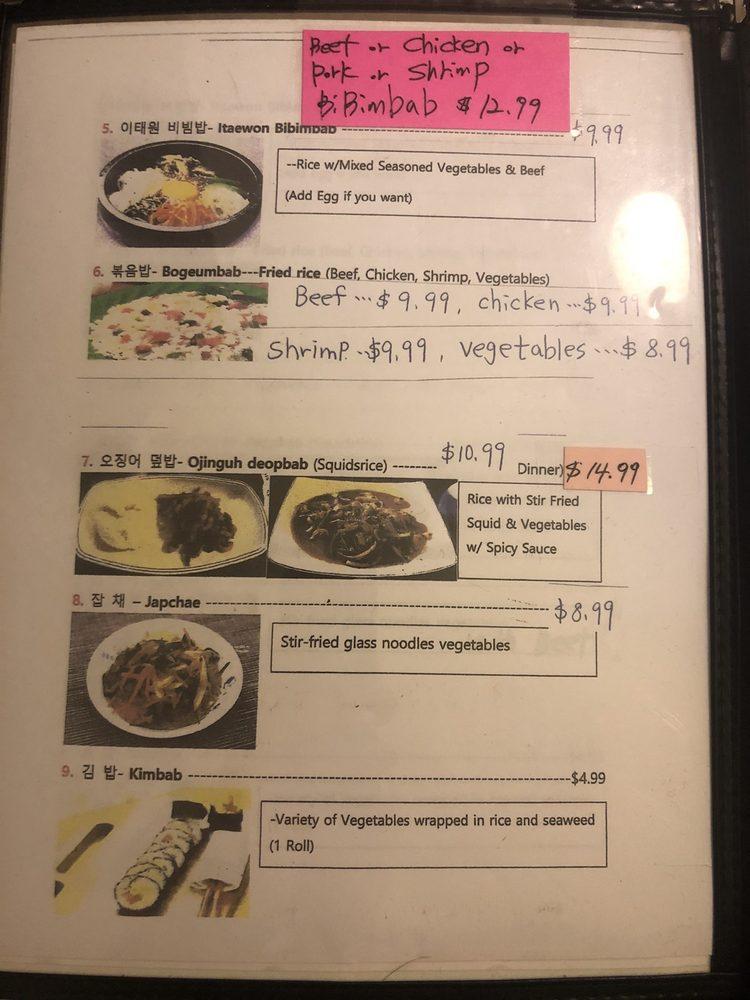 Beef or Chicken or
Pork or Shrimp
BiBimbab $12.99
5. 이태원 비빔밥- Itaewon Bibimbab ---------- $9.99
--Rice w/Mixed Seasoned Vegetables & Beef
(Add Egg if you want)
6. 볶음밥- Bogeumbab---Fried rice (Beef, Chicken, Shrimp, Vegetables)
Beef ... $9.99, chicken ... $9.99
Shrimp .. $9.99, vegetables .... $8.99
7. 오징어 덮밥- Ojinguh deopbab (Squidsrice) -------- $10.99 Dinner) $14.99
Rice with Stir Fried
Squid & Vegetables
w/ Spicy Sauce
8. 잡 채 – Japchae ---------- $8.99
Stir-fried glass noodles vegetables
9. 김 밥- Kimbab ---------- $4.99
-Variety of Vegetables wrapped in rice and seaweed
(1 Roll)